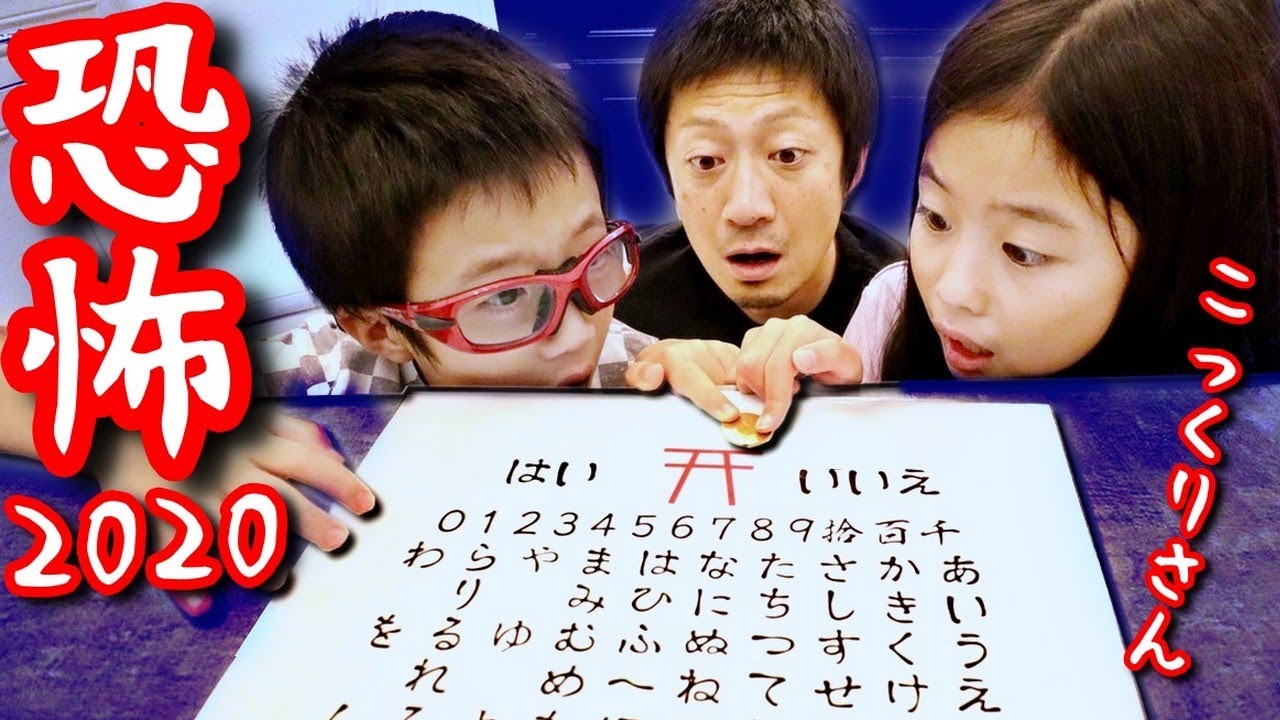 恐怖
2020
こっくりさん
はい いいえ
0 1 2 3 4 5 6 7 8 9 拾 百 千
わ ら や ま は な た さ か あ
り み ひ に ち し き い
を る ゆ む ふ ぬ つ す く う
れ め へ ね て せ け え